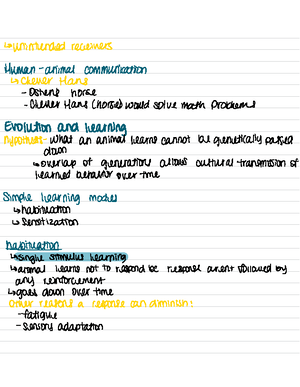 ↳unintended receivers
Human-animal communication
↳Clever Hans
- Ostens horse
- Clever Hans (horse) would solve math problems
Evolution and learning
hypothesis- what an animal learns cannot be genetically passed
down
↳overlap of generations allows cultural transmission of
learned behavior over time
Simple learning modes
↳habituation
↳Sensitization
habituation
↳single stimulus learning
↳animal learns not to respond bc response arent followed by
any reinforcement
↳goes down over time
Other reasons a response can diminish:
-fatigue
-Sensory adaptation